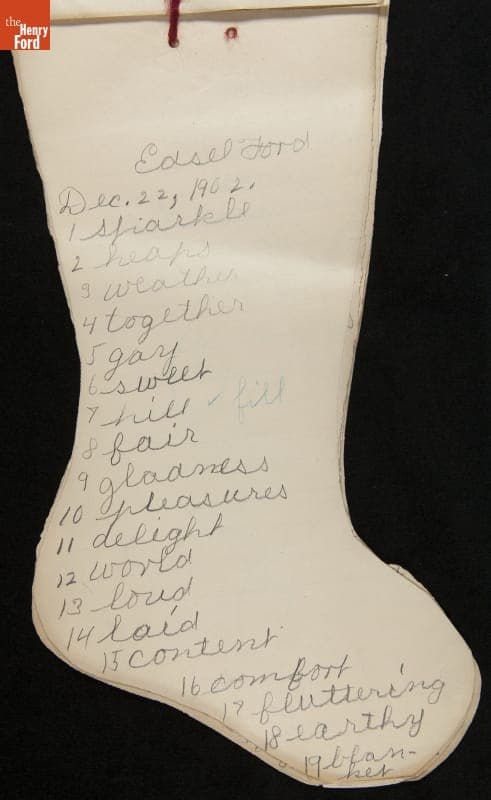 the
Henry
Ford
Edsel Ford
Dec. 22, 1902.
1 sparkle
2 heaps
3 weather
4 together
5 gay
6 sweet
7 hill ✓ fill
8 fair
9 gladness
10 pleasures
11 delight
12 world
13 loud
14 laid
15 content
16 comfort
17 fluttering
18 earthy
19 blan-
ket